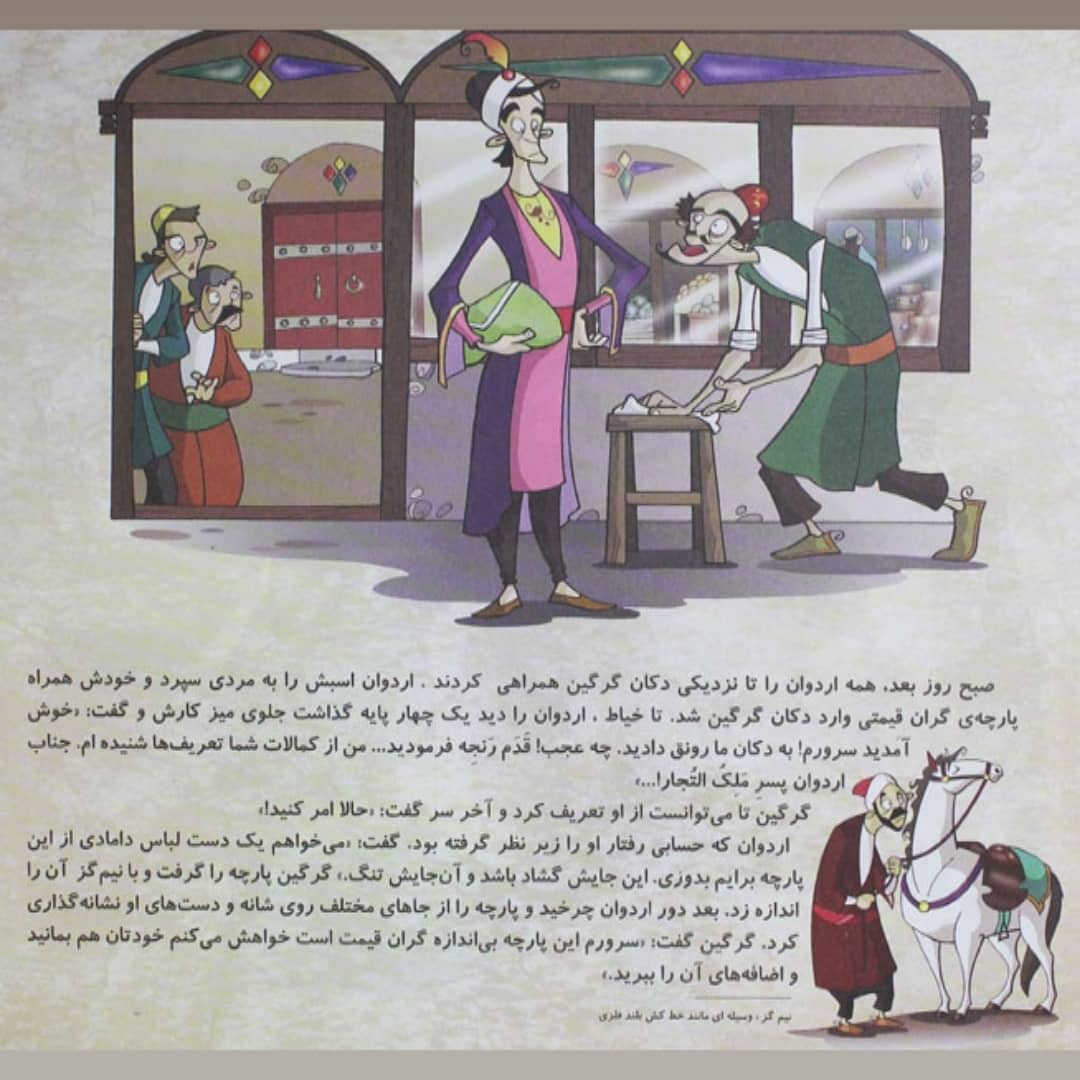 صبح روز بعد، همه اردوان را تا نزدیکی دکان گرگین همراهی کردند . اردوان اسبش را به مردی سپرد و خودش همراه
پارچه‌ی گران قیمتی وارد دکان گرگین شد. تا خیاط ، اردوان را دید یک چهار پایه گذاشت جلوی میز کارش و گفت: «خوش
آمدید سرورم! به دکان ما رونق دادید. چه عجب! قَدَم رَنجِه فرمودید... من از کمالات شما تعریف‌ها شنیده ام. جناب
اردوان پسرِ مَلِکُ التُجار!...»
گرگین تا می‌توانست از او تعریف کرد و آخر سر گفت: «حالا امر کنید!»
اردوان که حسابی رفتار او را زیر نظر گرفته بود. گفت: «می‌خواهم یک دست لباس دامادی از این
پارچه برایم بدوزی. این جایش گشاد باشد و آن‌جایش تنگ.» گرگین پارچه را گرفت و با نیم‌گز آن را
اندازه زد. بعد دور اردوان چرخید و پارچه را از جاهای مختلف روی شانه و دست‌های او نشانه‌گذاری
کرد. گرگین گفت: «سرورم این پارچه بی‌اندازه گران قیمت است خواهش می‌کنم خودتان هم بمانید
و اضافه‌های آن را ببرید.»
نیم گز : وسیله ای مانند خط کش بلند فلزی